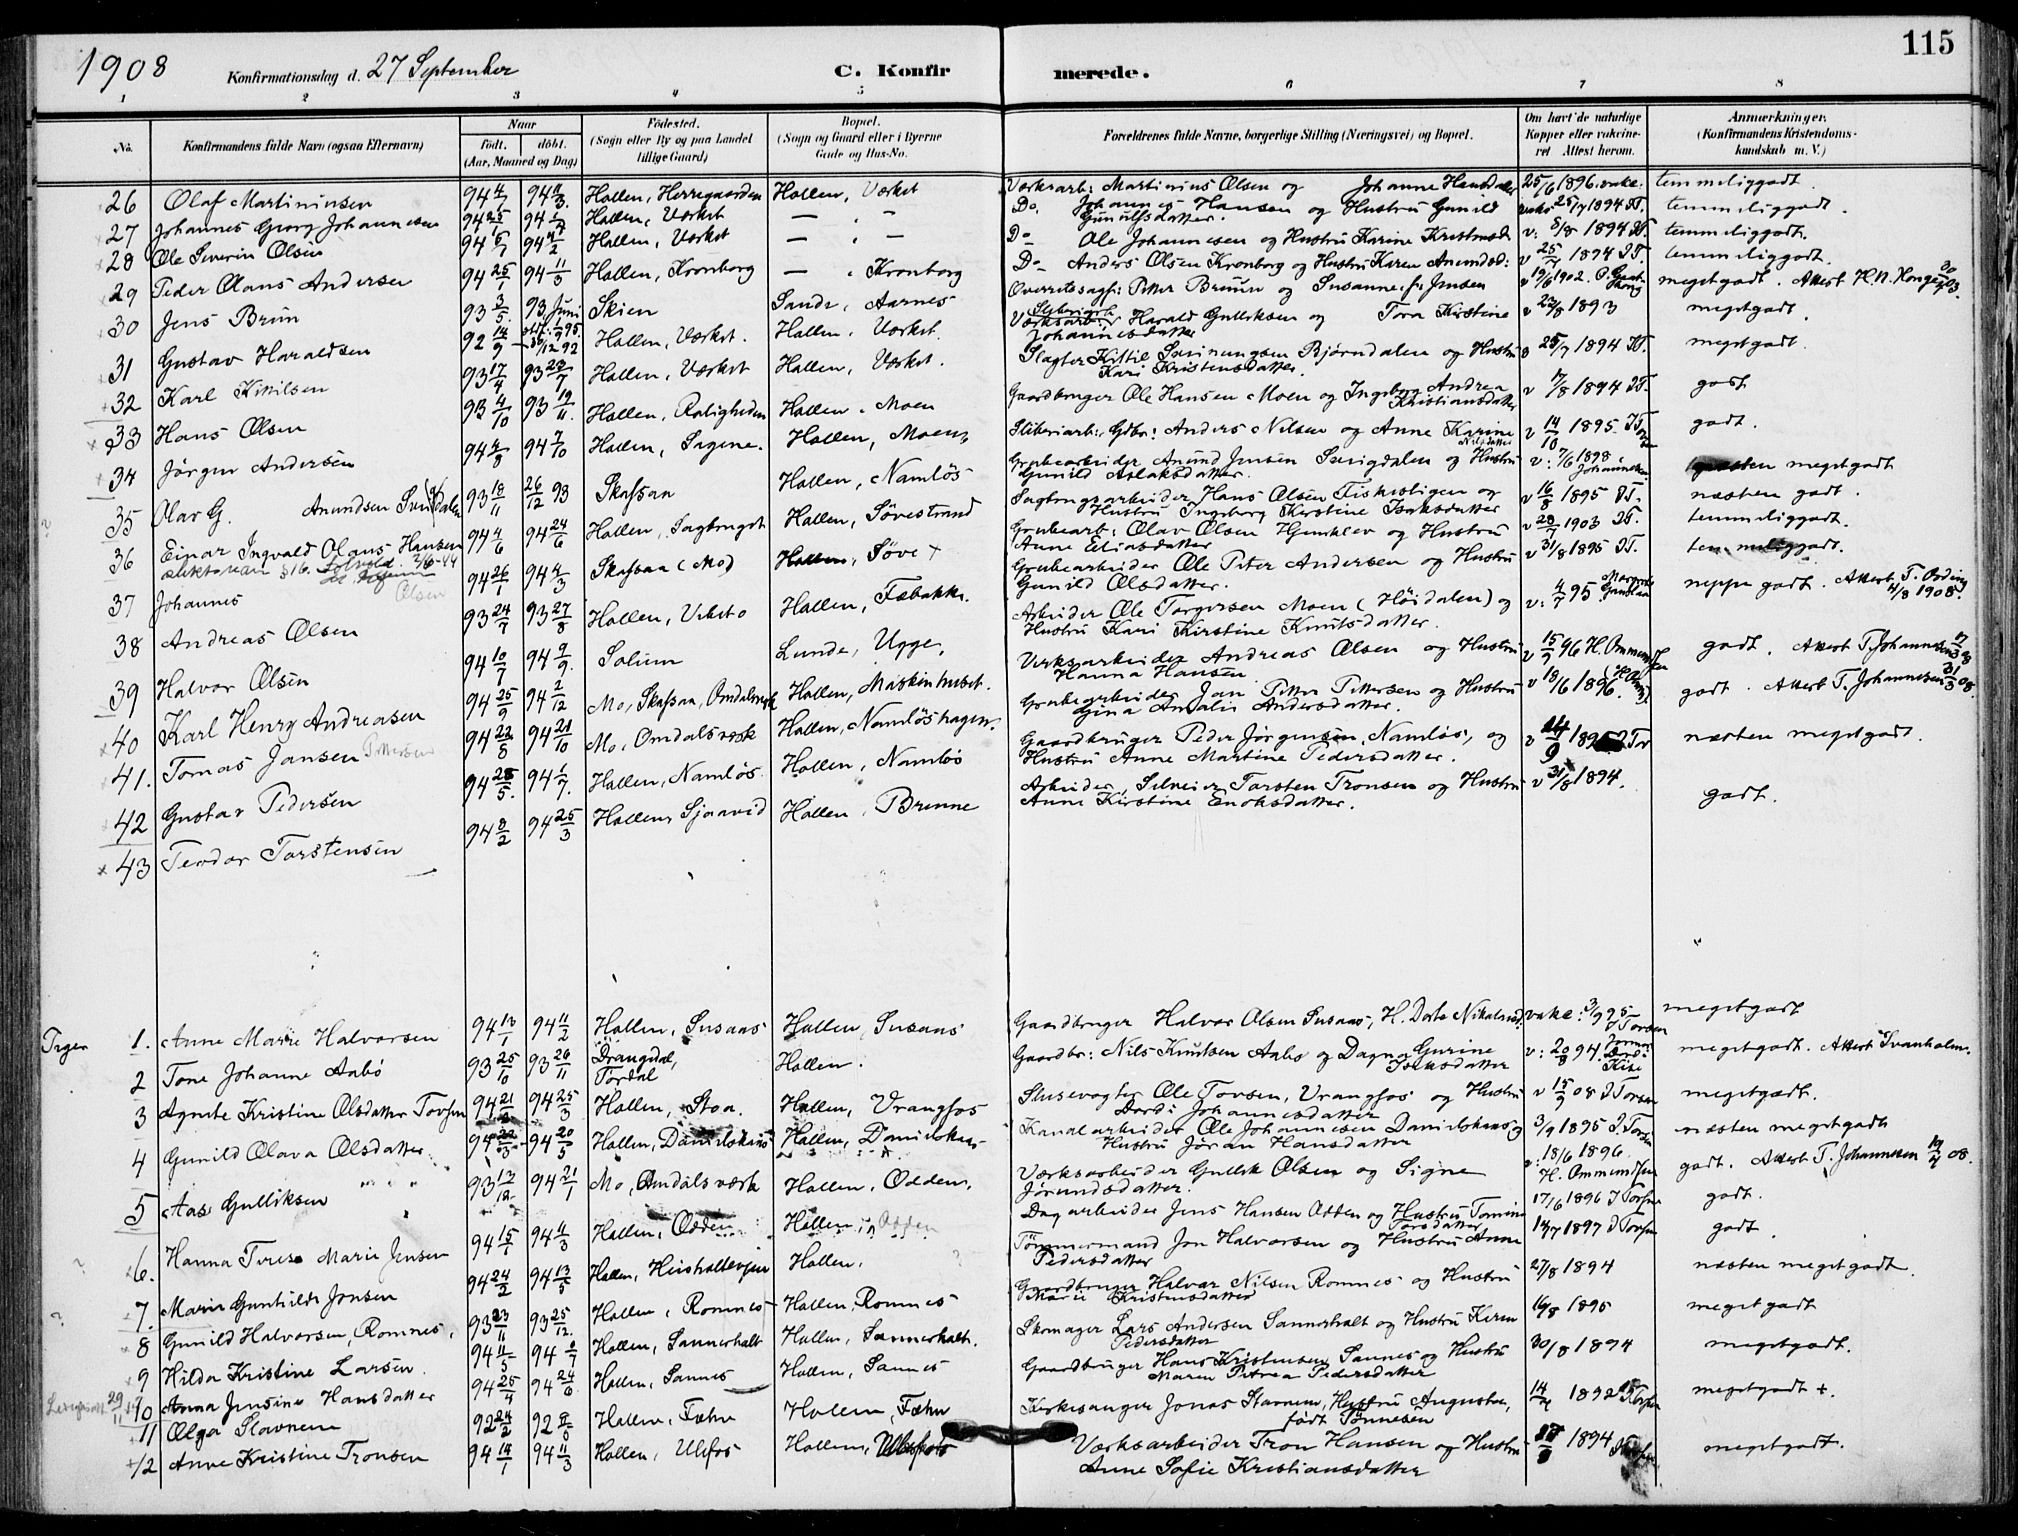 1908 Konfirmationsdag d. 27 September C. Konfirmerede. 115
1 2 3 4 5 6 7 8
No. Konfirmandens fulde Navn (ogsaa Efternavn) Naar födt. döbt. (Aar, Maaned og Dag) Födested. (Sogn eller By og paa Landet tillige Gaard) Bopæl. (Sogn og Gaard eller i Byerne Gade og Hus-No. Forældrenes fulde Navne, borgerlige Stilling (Næringsvei) og Bopæl. Om havt de naturlige Kopper eller vakcineret Attest herom. Anmærkninger. (Konfirmandens Kristendomskundskab m. V.)
26 Olaf Martininsen 94 4/7 94 Hollen, Herregaarden Hollen, Værket Værksarb: Martinius Olsen og Johanne Hansdatter 25/6 1896 vakc. temmeliggodt.
27 Johannes Georg Johannesen 94 25/1 94 Hollen, Værket — " — Do. Johannes Hansen og Hustru Gunild Gunulfsdatter. vaks 25/7 1894 temmeliggodt.
28 Ole Severin Olsen 94 94 Hollen, Værket — " — Do Ole Johannesen og Hustru Karine Kristensd: v: 8/8 1894 temmeliggodt.
29 Peder Olaus Andersen 94 25/1 94 11/3 Hollen, Kronborg — " Kronborg Do Anders Olsen Kronborg og Hustru Karen Anundsd: v 25/7 1894 temmeliggodt.
30 Jens Brun 93 3/5 93 Juni Skien Sande, Aarnes Overretssagf: Petter Bruun og Susanne f. Jensen v 19/6 1902 megetgodt. Attest H.N. Honge
31 Gustav Haraldsen 92 14/9 30/12 92 Hollen, Værket. Hollen, Værket. Værksarb: Harald Gulliksen og Tora Kirstine Johannesdatter v 22/8 1893 megetgodt.
32 Karl Kittilsen 93 17/4 93 23/7 Hollen, Værket Hollen, Værket. Slagter Kittil Sveinungsen Bjørndalen og Hustru Kari Kristensdatter. v 25/7 1894 megetgodt.
33 Hans Olsen 93 4/10 93 19/11 Hollen, Roligheden Hollen, Moen Gaardbruger Ole Hansen Moen og Ingeborg Andrea Kristiansdatter v 7/8 1894 godt
34 Jörgen Andersen 94 4/8 94 7/10 Hollen, Sagene. Hollen, Moen, Sliberiarb:, Gdbr: Anders Nilsen og Anne Karine Nilsdatter v 14/10 1895 godt.
35 Olav G. Anundsen Svigdalen 93 18/11 26/12 93 Skafsaa Hollen, Namlös Grubearbeider Anund Jensen Svigdalen og Hustru Gunild Aslaksdatter. v: 7/6 1898 næsten megetgodt
36 Einar Ingvald Olaus Hansen 94 4/6 94 24/6 Hollen, Sagbruget Hollen, Sövestrand Sagbrugsarbeider Hans Olsen Fiskestigen og Hustru Ingeborg Kirstine Isaksdatter v 16/8 1895 næsten godt.
37 Johannes Olsen 94 26/1 94 4/3 Skafsaa (Mo) Hollen, Söve + Grubearb: Olav Olsen Hjemklev og Hustru Anne Eliasdatter v 28/7 1903 temmeliggodt.
38 Andreas Olsen 93 24/7 93 27/8 Hollen, Vibeto Hollen, Fæbakke. Grubearbeider Ole Peter Andersen og Hustru Gunild Olsdatter. v 31/8 1895 temmeliggodt.
39 Halvor Olsen 94 10/7 94 9/9 Solum Lunde, Ugge, Arbeider Ole Torgersen Moen (Höidalen) og Hustru Kari Kirstine Knutsdatter. v: 4/7 95 neppe godt. Attest T. Ording 11/8 1908.
40 Karl Henry Andreasen 94 25/9 94 2/12 Mo, Skafsaa, Omdalsverk Hollen, Maskinhuset. Verksarbeider Andreas Olsen og Hustru Hanna Hansen v 15/9 96 H. Ommundsen godt. Attest T. Johannesen 17/3 08
41. Tomas Jansen Pettersen 94 22/8 94 21/10 Mo, Omdalsværk Hollen, Namlöshagen. Grubearbeider Jan Petter Pettersen og Hustru Gina Amalie Andersdatter. v 18/6 1896 godt. Attest T. Johannesen 31/3 08.
42 Gustav Pedersen 94 28/5 94 1/7 Hollen, Namlös. Hollen, Namlös Gaardbruger Peder Jörgensen, Namlös, og Hustru Anne Martine Pedersdatter. v 24/9 1895 næsten megetgodt.
43 Teodor Torstensen 94 8/2 94 25/3 Hollen, Sjaavid Hollen, Brenne Arbeider, Selveier Torsten Tronsen og Hustru Anne Kirstine Enoksdatter. v 31/8 1894. godt.
Piger 1. Anne Marie Halvorsen 94 13/1 94 11/2 Hollen, Susaas Hollen, Susaas Gaardbruger Halvor Olsen Susaas, H. Dorte Nikolaisd: vakc: 3/9 95 J Torsen megetgodt
2 Tone Johanne Aabö 93 25/10 93 26/11 Drangedal, Tördal Hollen. Gaardbr: Nils Knutsen Aabø og Dagne Gurine Isaksdatter v: 20/8 94. megetgodt. Attest Svanholm.
3 Agnete Kristine Olsdatter Tovsen 94 21/2 94 25/3 Hollen, Stoa. Hollen, Vrangfos Slusevogter Ole Tovsen, Vrangfos og Hustru Dordi Johannesdatter v 15/9 08 J Torsen megetgodt.
4 Gunild Olava Olsdatter 94 22/3 94 20/5 Hollen, Danielskaas Hollen, Danielskaas Kanalarbeider Ole Johannesen Danielskaas og Hustru Jøran Hansdatter 3/9 1895 J. Torsen næsten megetgodt
5 Aase Gulliksen 93 13/12 94 21/1 Mo, Omdalsværk Hollen, Odden, Værksarbeider Gullik Olsen og Signe Jørundsdatter. v: 18/6 1896 H. Ommundsen godt. Attest T. Johannesen 19/4 08.
6. Hanna Terese Marie Jensen 94 15/1 94 4/3 Hollen, Odden Hollen, Odden Dagarbeider Jens Hansen Odden og Hustru Tomine Torsdatter 17/6 1896 J Torsen godt.
7. Marie Gunhilde Jonsen 94 24/2 94 13/5 Hollen, Heishaltevjen Hollen, Tömmermand Jon Halvorsen og Hustru Anne Pedersdatter 14/7 1897 J Torsen godt.
8 Gunild Halvorsen, Romnes, 93 23/11 93 25/12 Hollen, Romnes Hollen, Romnes Gaardbruger Halvor Nilsen Romnes og Hustru Marie Kristensdatter 27/8 1894 næsten megetgodt.
9 Hilda Kristine Larsen 94 11/5 94 8/7 Hollen, Sannerholt Hollen, Sannerholt. Skomager Lars Andersen Sannerholt og Hustru Karen Pedersdatter 16/8 1895 megetgodt
10 Anna Jensine Hansdatter 94 25/4 94 24/6 Hollen, Sannes Hollen, Sannes Gaardbruger Hans Kristensen Sannes og Hustru Maren Petrea Pedersdatter 30/8 1894 megetgodt.
11 Olga Stavnem 92 24/2 92 8/5 Hollen, Fæhn Hollen, Fæhn Kirkesanger Jonas Stavnem, Hustru Augusta, født Tönnesen megetgodt +.
12 Anne Kristine Tronsen 94 14/1 94 11/3 Hollen, Ulefos Hollen, Ulefos Værksarbeider Tron Hansen og Hustru Anne Sofie Kristiansdatter 1894 megetgodt.